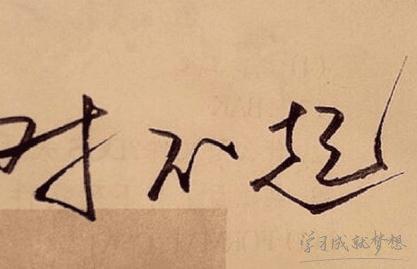 对不起
学习成就梦想